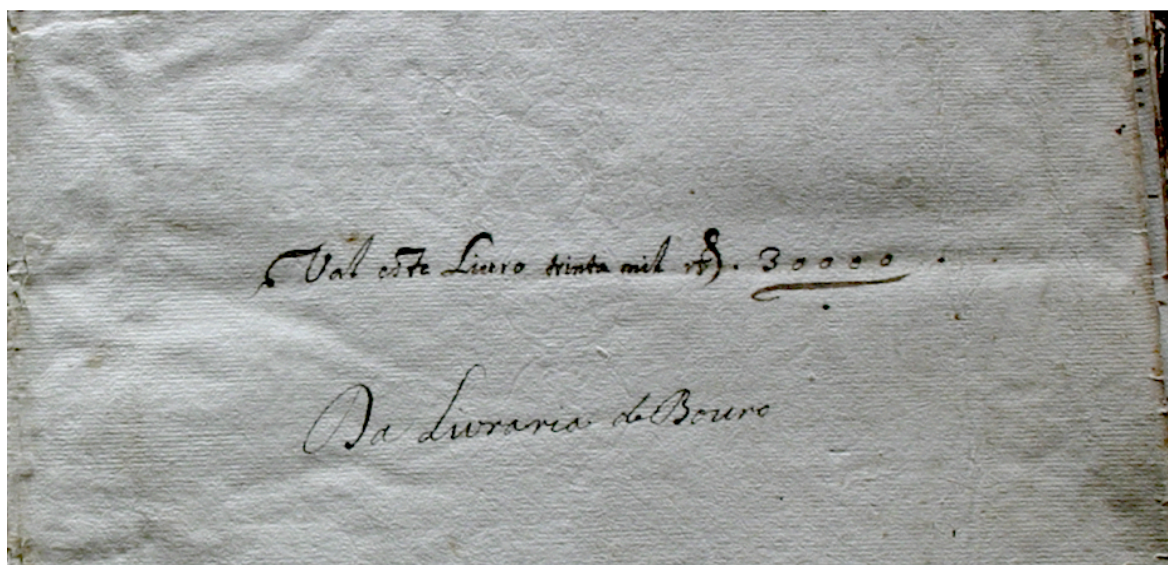 Val este Livro trinta mil rs. 30000
Da Livraria de Bouro